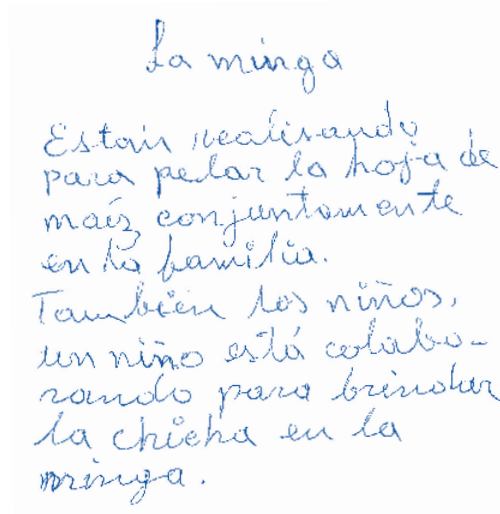 La minga
Están realisando
para pelar la hoja de
maíz conjuntamente
en la familia.
También los niños,
un niño está colabo-
rando para brindar
la chicha en la
minga.